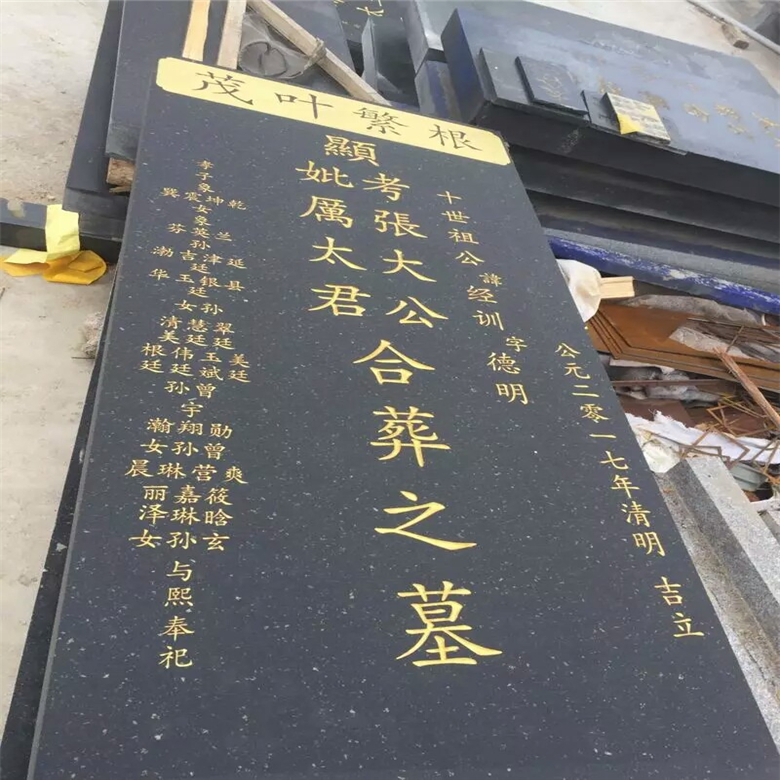 根繁叶茂
公元二零一七年清明 吉立
十世祖公諱经训字德明
顯
考張大公
妣厲太君
合葬之墓
孝子象
乾坤震巽
女象
兰英芬
孙
延津吉渤
廷
县银玉华
廷
孙女
翠慧清
廷廷美
美玉伟根
廷斌廷廷
曾孙
宇
勋翔瀚
曾孙女
爽营琳晨
筱嘉丽
晗琳泽
玄孙女
与熙奉祀